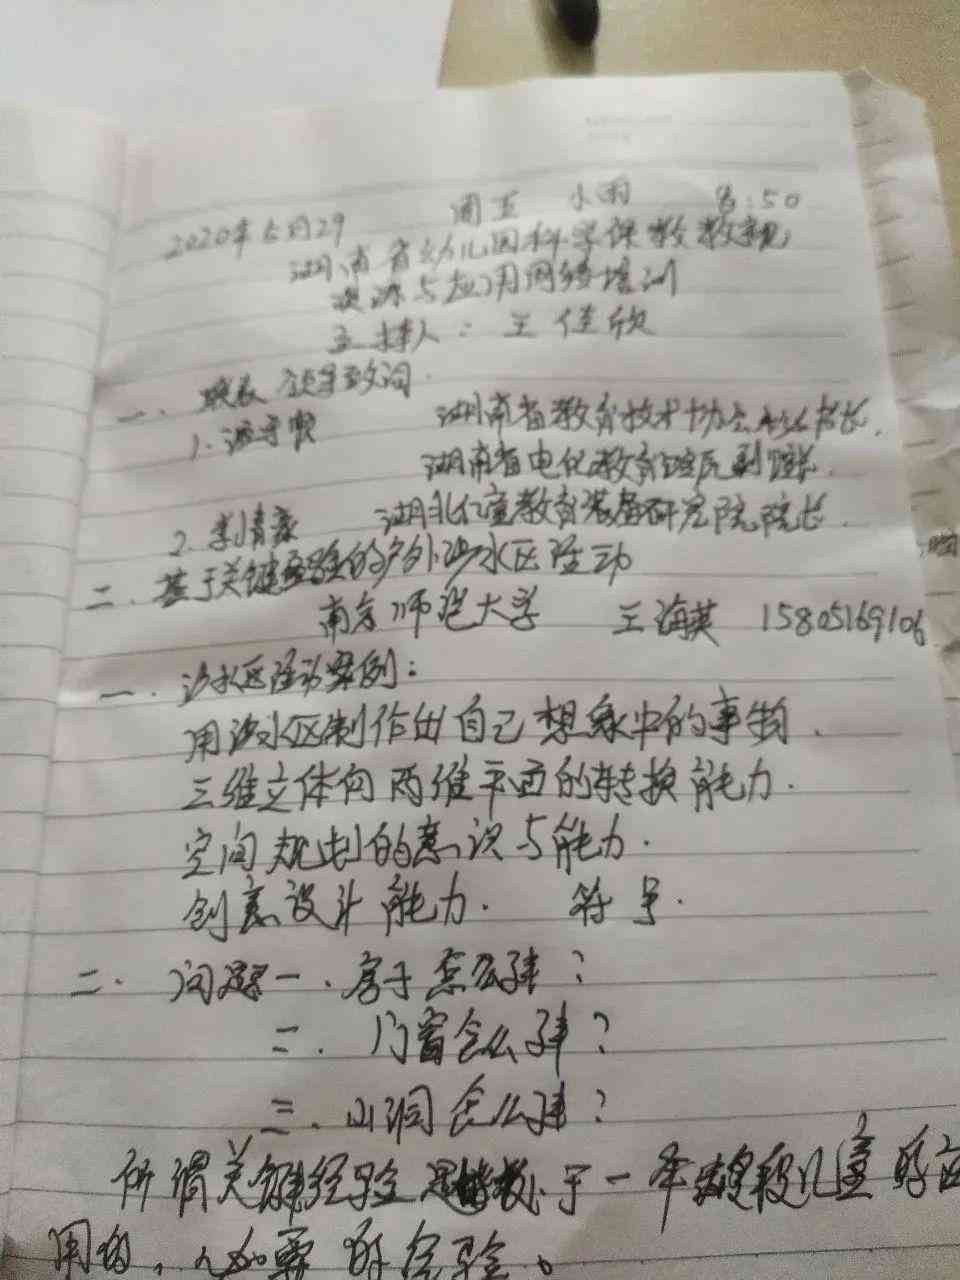 2020年5月29 周五 小雨 8:50
湖南省幼儿园科学保教教视
资源与应用网络培训
主持人：王佳欣
一、 领导致词.
1.
湖南省教育技术协会秘书长.
湖南省电化教育馆副馆长.
2. 湖北儿童教育装备研究院院长.
二、基于关键经验的户外沙水区活动
南京师范大学 王海英 15805169106
一、沙水区活动案例：
用沙水区制作出自己想象中的事物.
三维立体向两维平面的转换能力.
空间规划的意识与能力.
创意设计能力. 符号.
二、问题一、房子怎么建？
二、门窗怎么建？
三、山洞怎么建？
所谓关键经验是指对于一个年龄段儿童
用的，必要的经验。